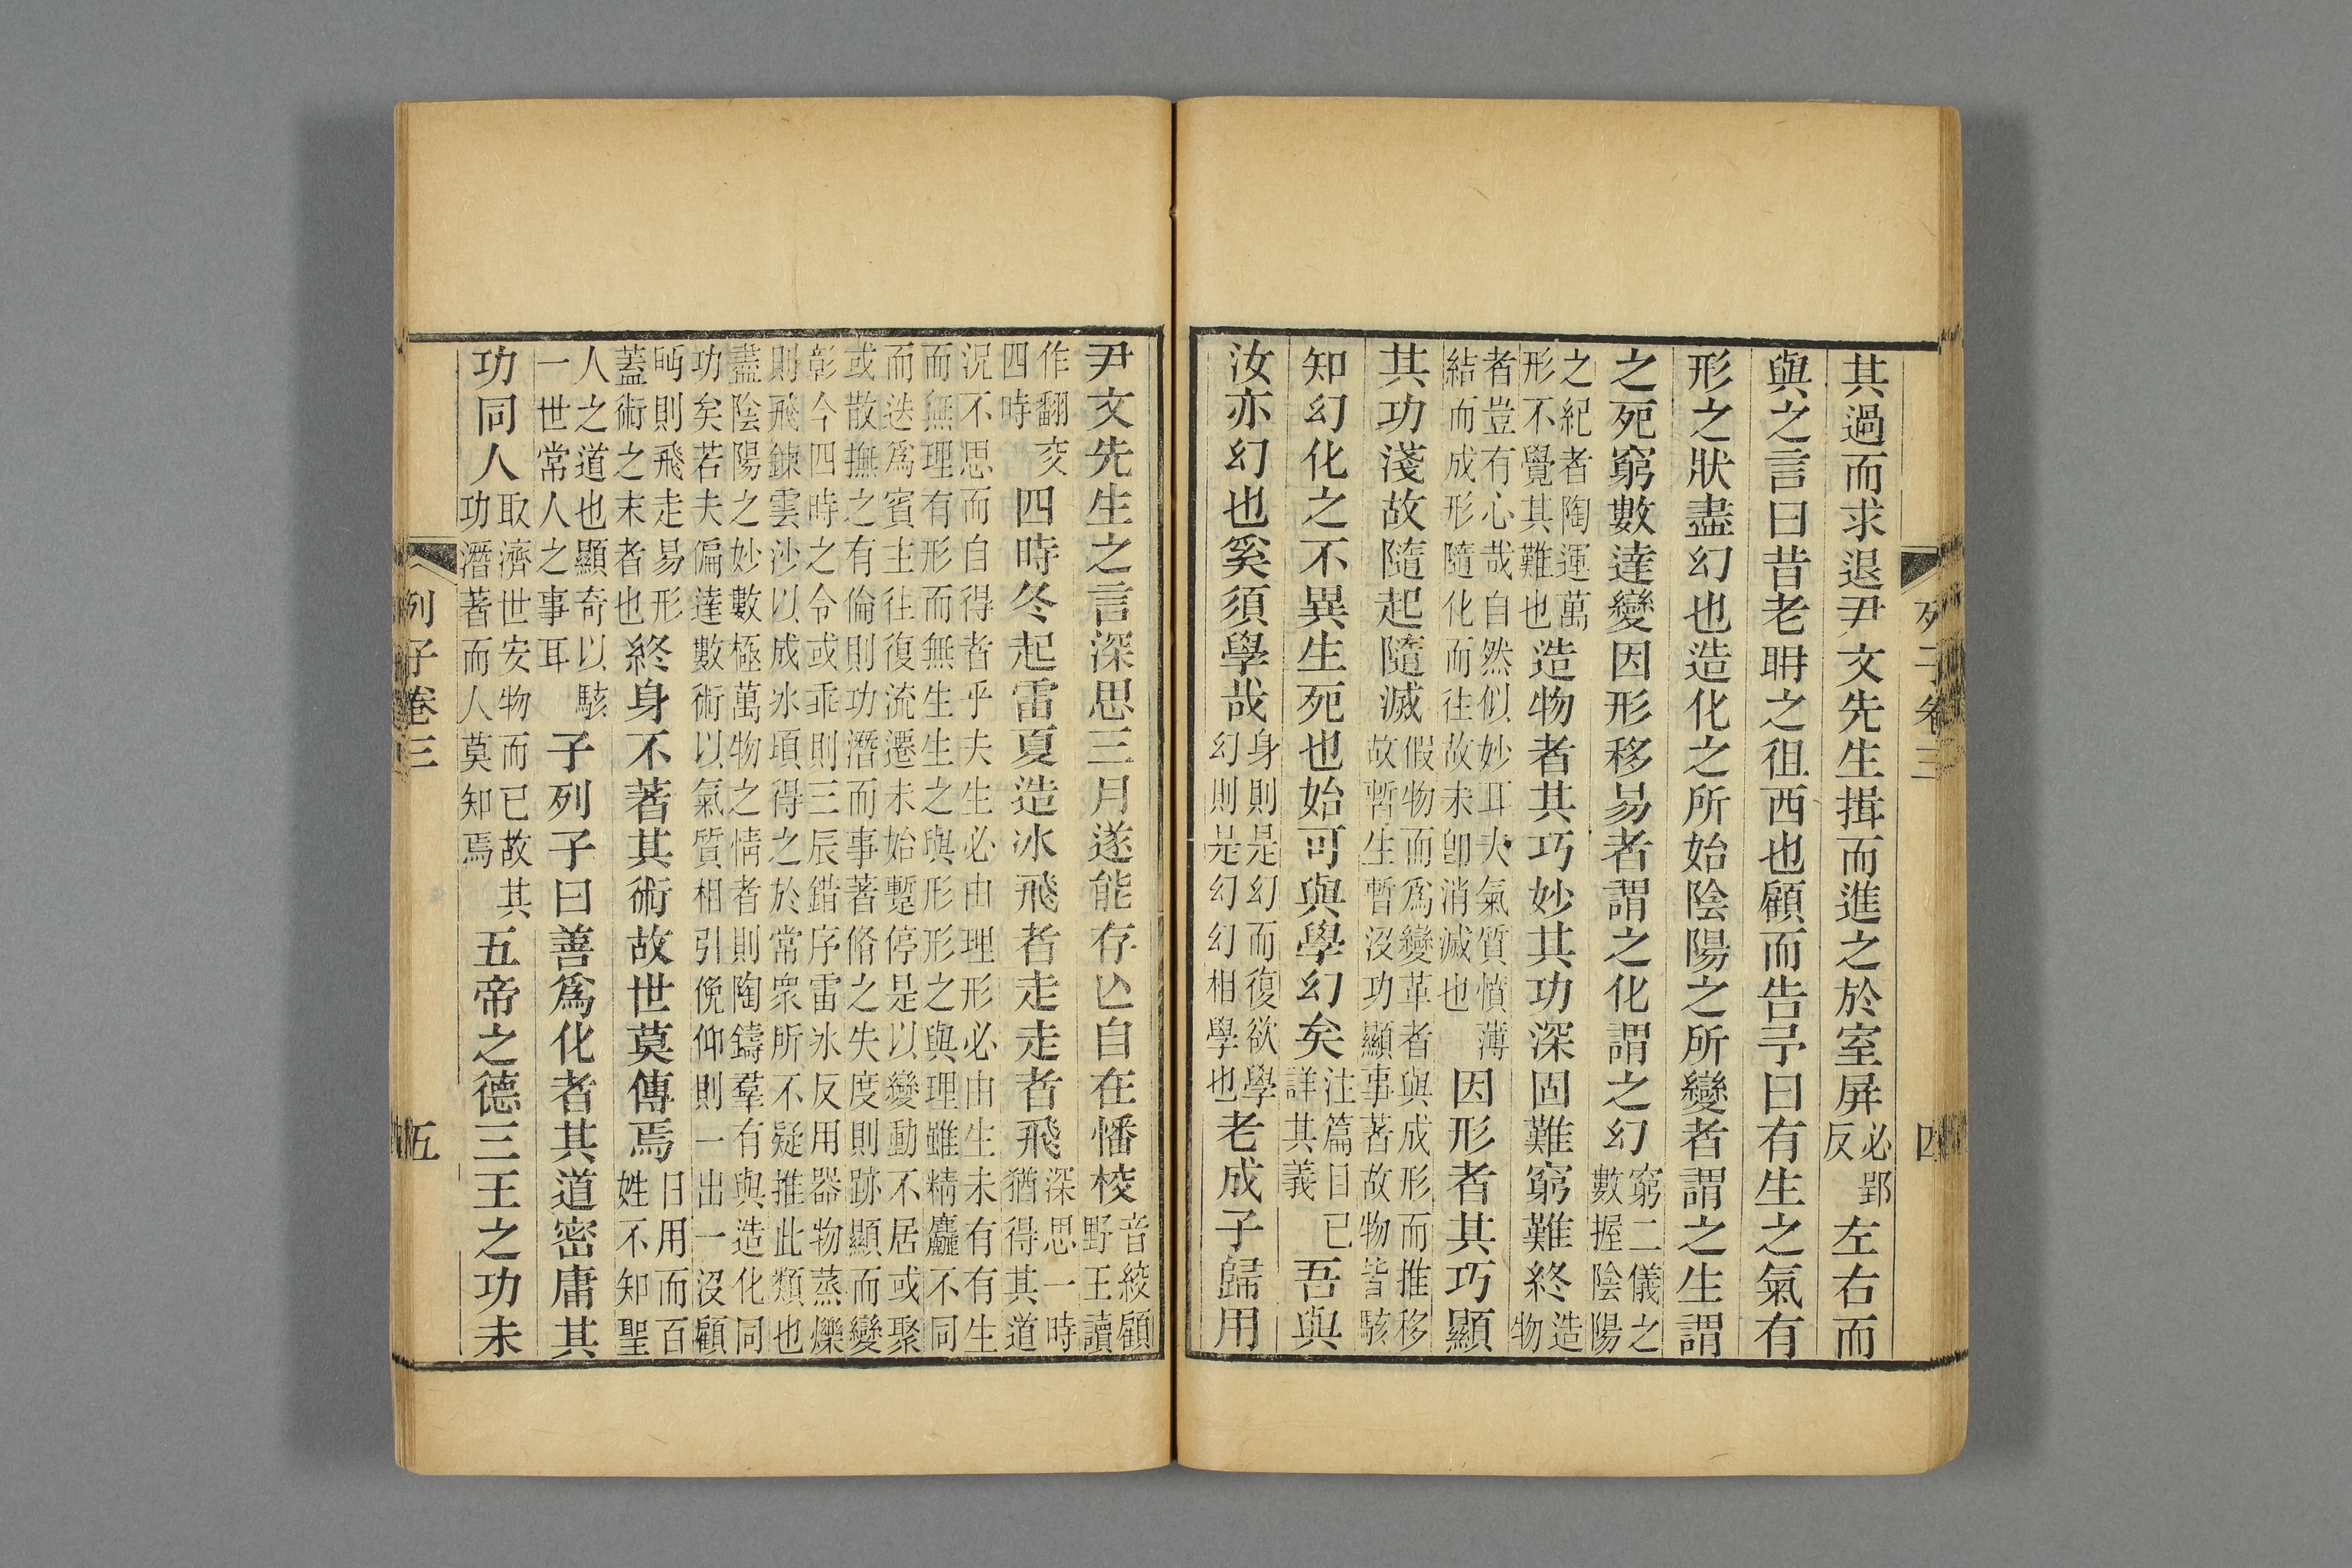 列子卷三
四
其過而求退尹文先生揖而進之於室屏必郢反左右而
與之言曰昔老耼之徂西也顧而告予曰有生之氣有
形之狀盡幻也造化之所始陰陽之所變者謂之生謂
之死窮數達變因形移易者謂之化謂之幻窮二儀之數握陰陽
之紀者陶運萬形不覺其難也造物者其巧妙其功深固難窮難終造物
者豈有心哉自然似妙耳夫氣質憤薄結而成形隨化而往故未卽消滅也因形者其巧顯
其功淺故隨起隨滅假物而爲變革者與成形而推移故暫生暫沒功顯事著故物皆駭
知幻化之不異生死也始可與學幻矣注篇目已詳其義吾與
汝亦幻也奚須學哉身則是幻而復欲學幻則是幻幻相學也老成子歸用
尹文先生之言深思三月遂能存亾自在憣校音絞顧野王讀
作翻交四時四時冬起雷夏造冰飛者走走者飛深思一時猶得其道
況不思而自得者乎夫生必由理形必由生未有有生而無理有形而無生生之與形形之與理雖精麤不同
而迭爲賓主往復流遷未始蹔停是以變動不居或聚或散撫之有倫則功潛而事著脩之失度則跡顯而變
彰今四時之令或乖則三辰錯序雷冰反用器物蒸爍則飛鍊雲沙以成冰澒得之於常衆所不疑推此類也
盡陰陽之妙數極萬物之情者則陶鑄羣有與造化同功矣若夫偏達數術以氣質相引俛仰則一出一沒顧
眄則飛走易形蓋術之末者也終身不著其術故世莫傳焉日用而百姓不知聖
人之道也顯奇以駭一世常人之事耳子列子曰善爲化者其道密庸其
功同人取濟世安物而已故其功潛著而人莫知焉五帝之德三王之功未
列子卷三
五